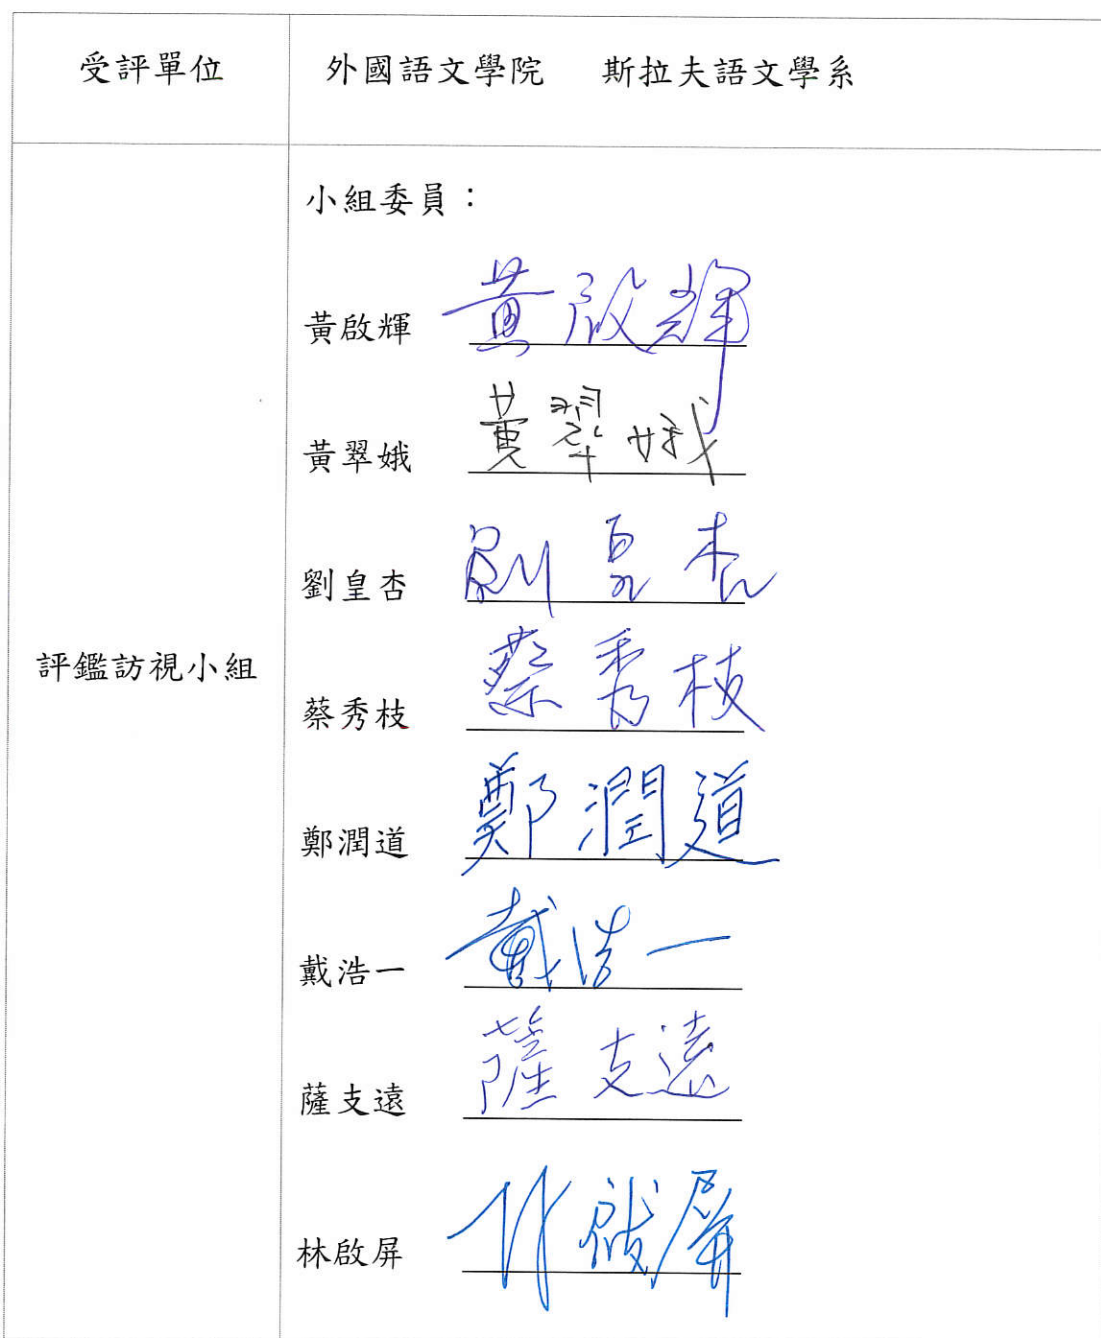 受評單位
外國語文學院 斯拉夫語文學系
評鑑訪視小組
小組委員：
黃啟輝 黃啟輝
黃翠娥 黃翠娥
劉皇杏 劉皇杏
蔡秀枝 蔡秀枝
鄭潤道 鄭潤道
戴浩一 戴浩一
薩支遠 薩支遠
林啟屏 林啟屏